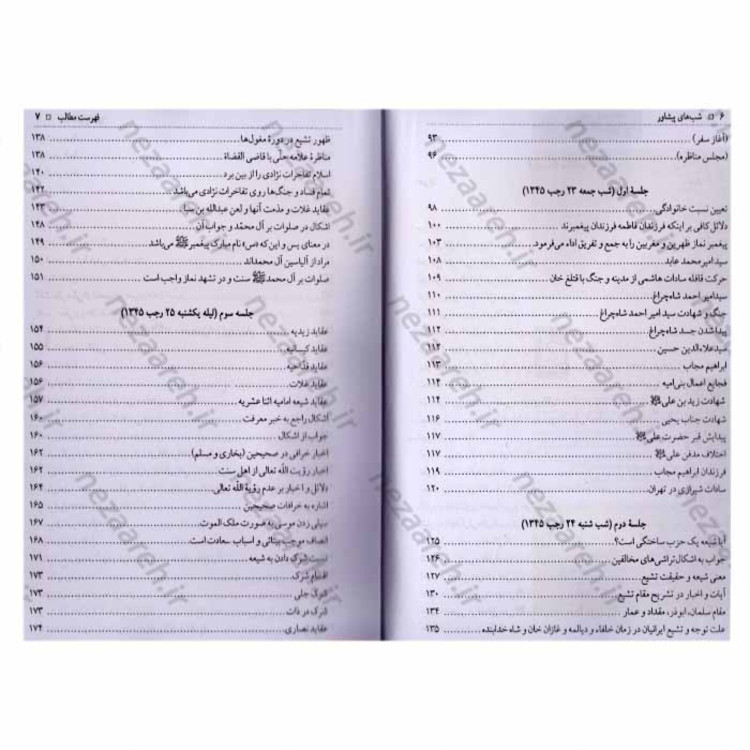 ۶ □ شب‌های پیشاور
(آغاز سفر) ۹۳
(مجلس مناظره) ۹۶
جلسهٔ اول (شب جمعه ۲۳ رجب ۱۳۴۵)
تعیین نسبت خانوادگی ۹۸
دلائل کافی بر اینکه فرزندان فاطمه فرزندان پیغمبرند ۱۰۰
پیغمبر نماز ظهرین و مغربین را به جمع و تفریق اداء می‌فرمود ۱۰۳
سید امیر محمد عابد ۱۰۸
حرکت قافله سادات هاشمی از مدینه و جنگ با قتلغ خان ۱۰۹
سید امیر احمد شاه‌چراغ ۱۱۰
جنگ و شهادت سید امیر احمد شاه‌چراغ ۱۱۱
پیدا شدن جسد شاه‌چراغ ۱۱۲
سید علاءالدین حسین ۱۱۲
ابراهیم مجاب ۱۱۳
فجایع اعمال بنی‌امیه ۱۱۴
شهادت زید بن علی ۱۱۴
شهادت جناب یحیی ۱۱۶
پیدایش قبر حضرت علی ۱۱۷
اختلاف مدفن علی ۱۱۷
فرزندان ابراهیم مجاب ۱۱۹
سادات شیرازی در تهران ۱۲۰
جلسهٔ دوم (شب شنبه ۲۴ رجب ۱۳۴۵)
آیا شیعه یک حزب ساختگی است؟ ۱۲۵
جواب به اشکال‌تراشی‌های مخالفین ۱۲۶
معنی شیعه و حقیقت تشیع ۱۲۷
آیات و اخبار در تشریح مقام تشیع ۱۳۰
مقام سلمان، ابوذر، مقداد و عمار ۱۳۴
علت توجه و تشیع ایرانیان در زمان خلفاء و دیالمه و غازان خان و شاه خدابنده ۱۳۵
فهرست مطالب □ ۷
ظهور تشیع در دورهٔ مغول‌ها ۱۳۸
مناظرهٔ علامه حلّی با قاضی القضاة ۱۳۸
اسلام تفاخرات نژادی را از بین برد ۱۴۰
تمام فساد و جنگ‌ها روی تفاخرات نژادی می‌باشد ۱۴۲
عقاید غلات و مذمت آنها و لعن عبدالله بن سبا ۱۴۳
اشکال در صلوات بر آل محمّد و جواب آن ۱۴۸
در معنای یس و این که «س» نام مبارک پیغمبر ﷺ می‌باشد ۱۴۹
مراد از آلیاسین آل محمداند ۱۵۰
صلوات بر آل محمد ﷺ سنت و در تشهد نماز واجب است ۱۵۱
جلسه سوم (لیله یکشنبه ۲۵ رجب ۱۳۴۵)
عقاید زیدیه ۱۵۴
عقاید کیسانیه ۱۵۵
عقاید قداحیه ۱۵۶
عقاید غلات ۱۵۶
عقاید شیعه امامیه اثنا عشریه ۱۵۷
اشکال راجع به خبر معرفت ۱۶۰
جواب از اشکال ۱۶۰
اخبار خرافی در صحیحین (بخاری و مسلم) ۱۶۲
اخبار رؤیت الله تعالی از اهل سنت ۱۶۲
دلائل و اخبار بر عدم رؤیة الله تعالی ۱۶۴
اشاره به خرافات صحیحین ۱۶۵
سیلی زدن موسی به صورت ملک الموت ۱۶۷
انصاف موجب بینائی و اسباب سعادت است ۱۶۸
نسبت شرک دادن به شیعه ۱۷۱
اقسام شرک ۱۷۳
شرک جلی ۱۷۳
شرک در ذات ۱۷۳
عقاید نصاری ۱۷۴
nezaareh.ir